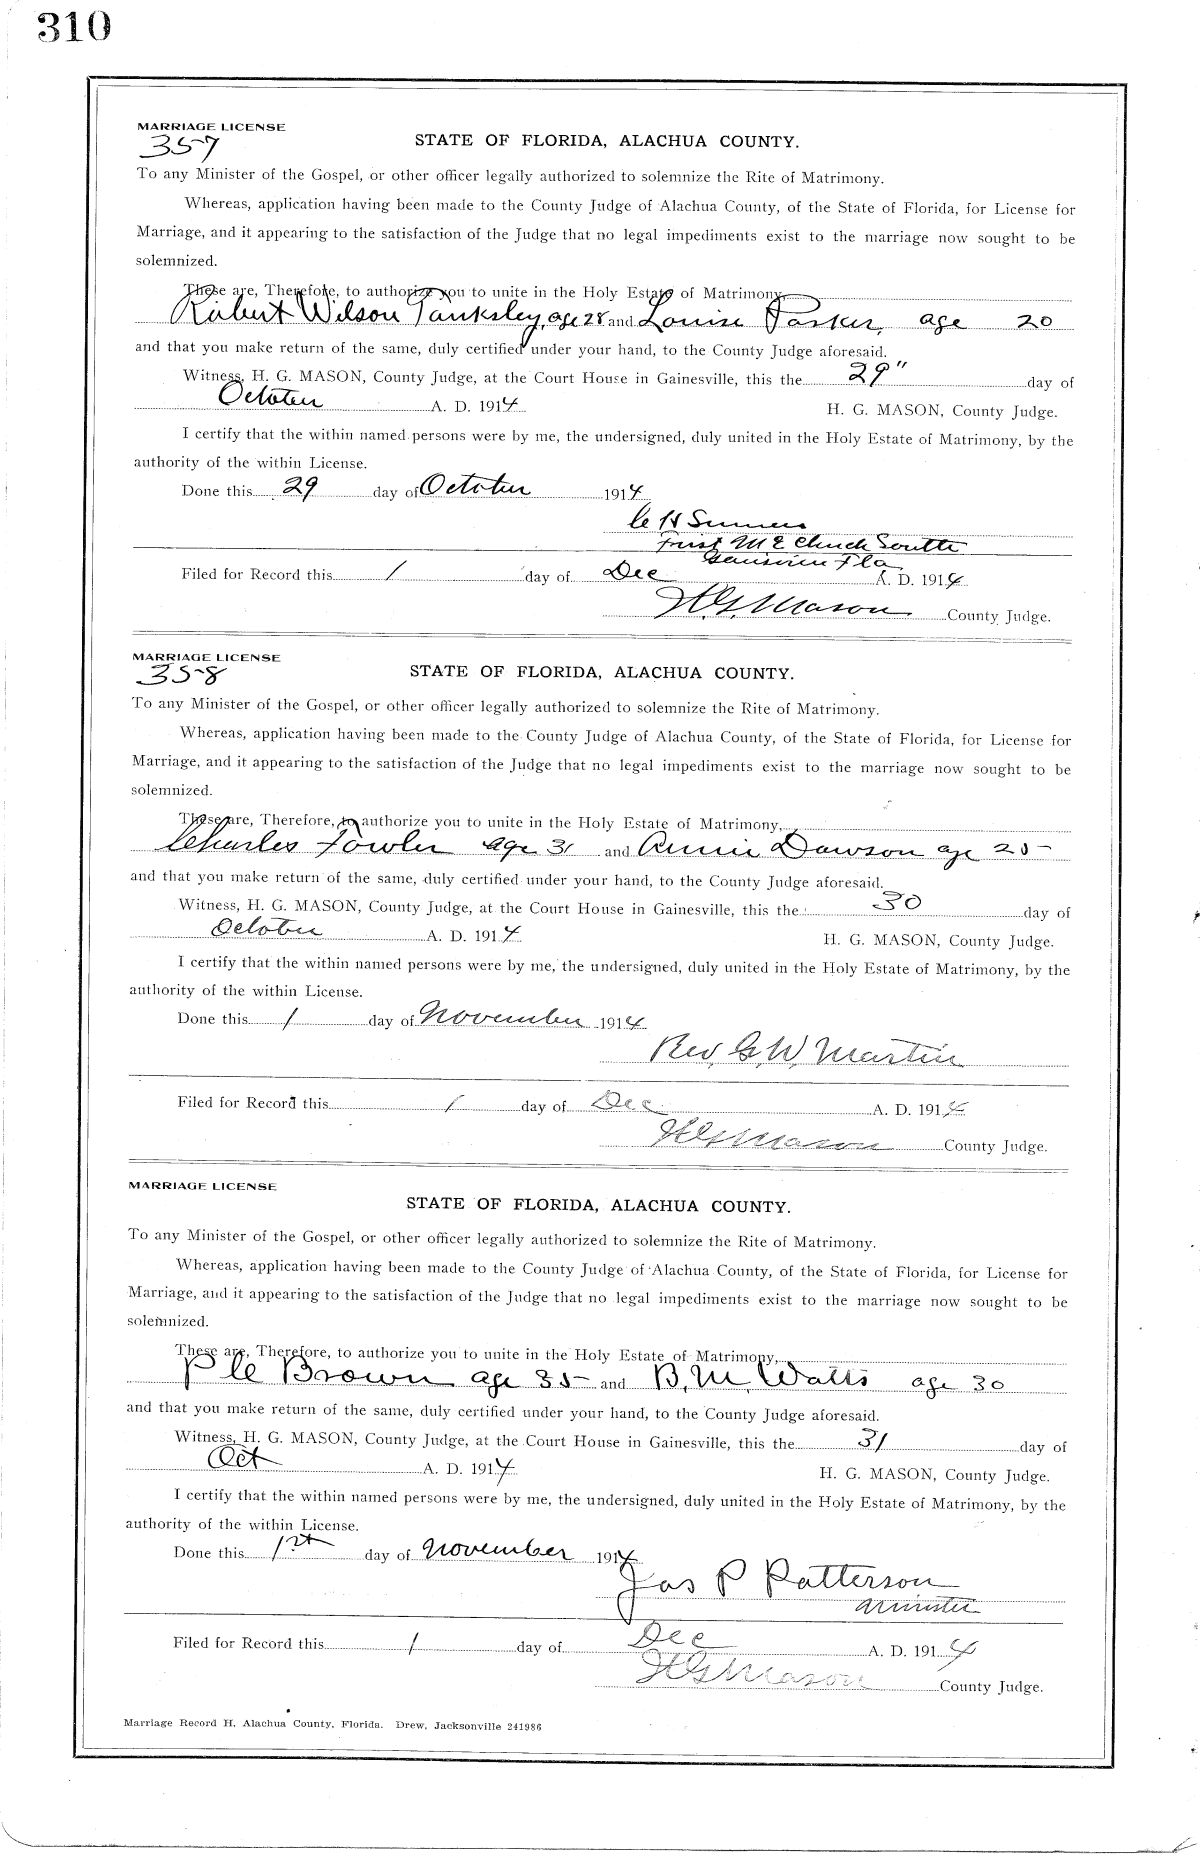 310
MARRIAGE LICENSE
357
STATE OF FLORIDA, ALACHUA COUNTY.
To any Minister of the Gospel, or other officer legally authorized to solemnize the Rite of Matrimony.
Whereas, application having been made to the County Judge of Alachua County, of the State of Florida, for License for
Marriage, and it appearing to the satisfaction of the Judge that no legal impediments exist to the marriage now sought to be
solemnized.
These are, Therefore, to authorize you to unite in the Holy Estate of Matrimony,
Robert Wilson Tanksley, age 28 and Louise Parker, age 20
and that you make return of the same, duly certified under your hand, to the County Judge aforesaid.
Witness, H. G. MASON, County Judge, at the Court House in Gainesville, this the 29" day of
October A. D. 1914 H. G. MASON, County Judge.
I certify that the within named persons were by me, the undersigned, duly united in the Holy Estate of Matrimony, by the
authority of the within License.
Done this 29 day of October 1914
C H Summers
First M E Church South
Gainesville Fla
Filed for Record this 1 day of Dec A. D. 1914
H. G. Mason County Judge.
MARRIAGE LICENSE
358
STATE OF FLORIDA, ALACHUA COUNTY.
To any Minister of the Gospel, or other officer legally authorized to solemnize the Rite of Matrimony.
Whereas, application having been made to the County Judge of Alachua County, of the State of Florida, for License for
Marriage, and it appearing to the satisfaction of the Judge that no legal impediments exist to the marriage now sought to be
solemnized.
These are, Therefore, to authorize you to unite in the Holy Estate of Matrimony,
Charles Fowler age 31 and Annie Dawson age 25
and that you make return of the same, duly certified under your hand, to the County Judge aforesaid.
Witness, H. G. MASON, County Judge, at the Court House in Gainesville, this the 30 day of
October A. D. 1914 H. G. MASON, County Judge.
I certify that the within named persons were by me, the undersigned, duly united in the Holy Estate of Matrimony, by the
authority of the within License.
Done this 1 day of November 1914
Rev. G. W. Martin
Filed for Record this 1 day of Dec A. D. 1914
H G Mason County Judge.
MARRIAGE LICENSE
STATE OF FLORIDA, ALACHUA COUNTY.
To any Minister of the Gospel, or other officer legally authorized to solemnize the Rite of Matrimony.
Whereas, application having been made to the County Judge of Alachua County, of the State of Florida, for License for
Marriage, and it appearing to the satisfaction of the Judge that no legal impediments exist to the marriage now sought to be
solemnized.
These are, Therefore, to authorize you to unite in the Holy Estate of Matrimony,
P C Brown age 35 and B. M. Watts age 30
and that you make return of the same, duly certified under your hand, to the County Judge aforesaid.
Witness, H. G. MASON, County Judge, at the Court House in Gainesville, this the 31 day of
Oct A. D. 1914 H. G. MASON, County Judge.
I certify that the within named persons were by me, the undersigned, duly united in the Holy Estate of Matrimony, by the
authority of the within License.
Done this 1st day of November 1914
Jas P Patterson
Minister
Filed for Record this 1 day of Dec A. D. 1914
H G Mason County Judge.
Marriage Record H, Alachua County, Florida. Drew, Jacksonville 241986